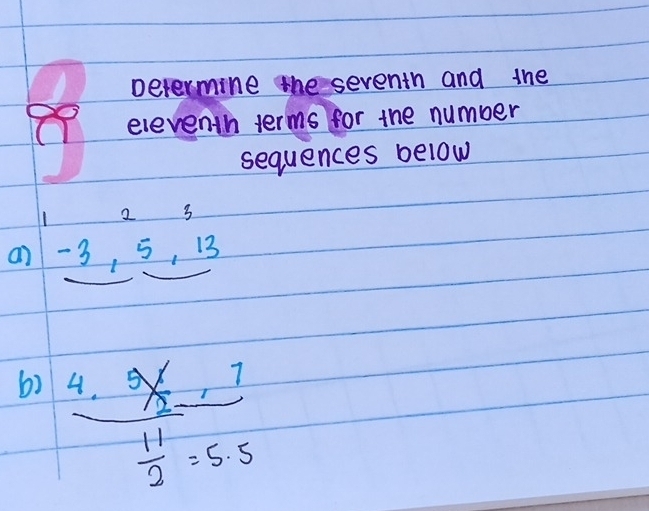 3
Determine the seventh and the
eleventh terms for the number
sequences below
1 2 3
a) -3, 5, 13
b) 4, 5 1/2, 7
11/2 = 5.5